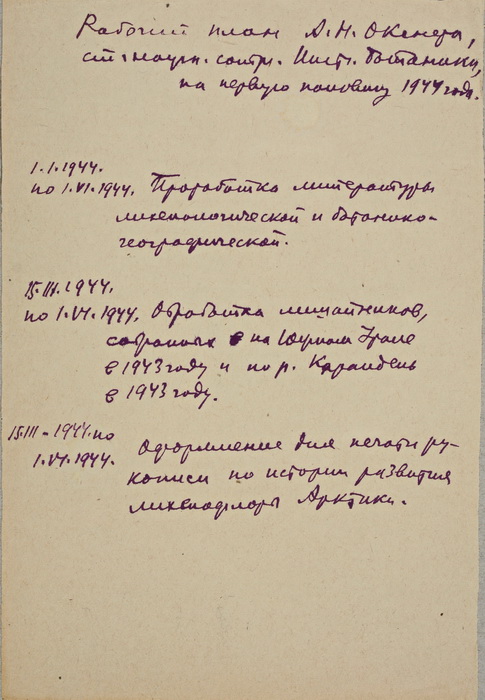 Рабочий план А.Н. Окснера,
ст. научн. сотр. Инст. ботаники,
на первую половину 1944 года.
1.I.1944.
по 1.VI.1944. Проработка литературы
лихенологической и ботанико-
географической.
15.III.1944.
по 1.VI.1944. Обработка лишайников,
собранных на Южном Урале
в 1943 году и по р. Караидель
в 1943 году.
15.III-1944.по
1.VI.1944. Оформление для печати ру-
кописи по истории развития
лихенофлоры Арктики.